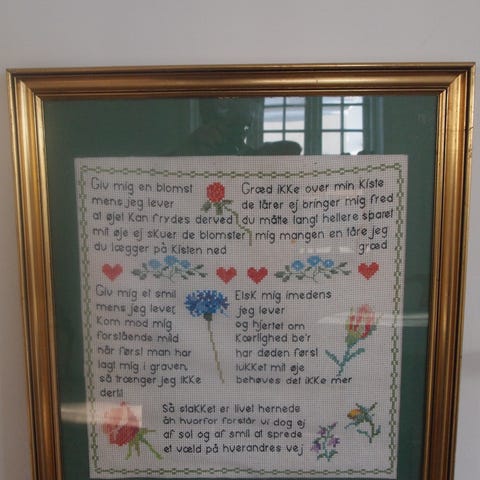 Giv mig en blomst
mens jeg lever
at øjet kan frydes derved
mit øje ej skuer de blomster
du lægger på kisten ned
Græd ikke over min Kiste
de tårer ej bringer mig fred
du måtte langt hellere sparet
mig mangen en tåre jeg
græd
Giv mig et smil
mens jeg lever,
Kom mod mig
forstående mild
når først man har
lagt mig i graven,
så trænger jeg ikke
dertil
Elsk mig imedens
jeg lever
og hjertet om
Kærlighed be'r
har døden først
lukket mit øje
behøves det ikke mer
Så stakket er livet hernede
åh hvorfor forstår vi dog ej
af sol og af smil at sprede
et væld på hverandres vej